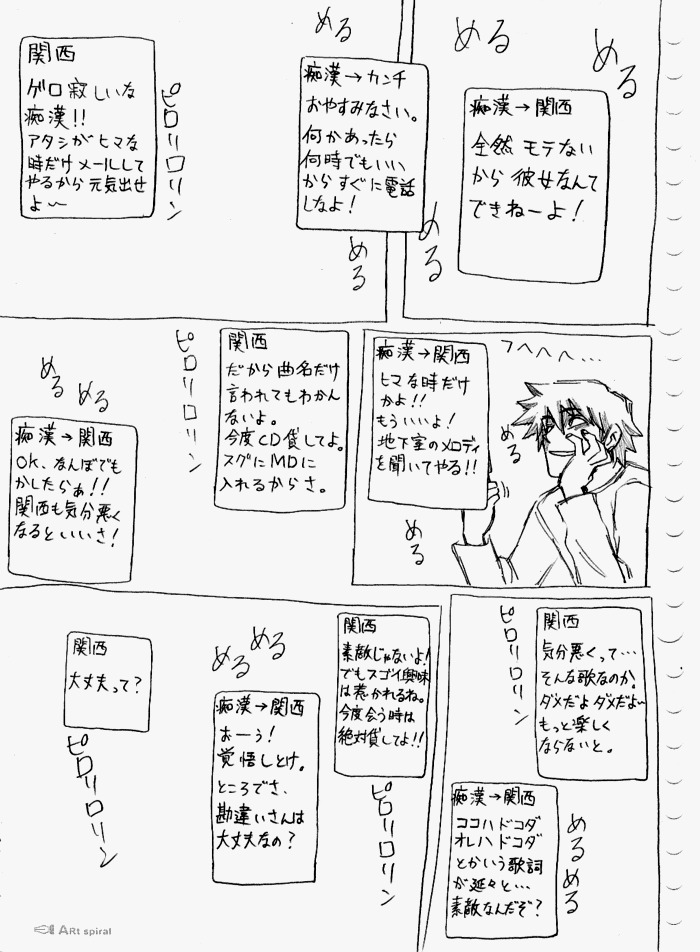 める
める
痴漢→関西
全然モテない
から彼女なんて
できねーよ！
める
める
痴漢→カンチ
おやすみなさい。
何かあったら
何時でもいい
からすぐに電話
しなよ！
める
ピロリロリン
関西
ゲロ寂しいな
痴漢！！
アタシがヒマな
時だけメールして
やるから元気出せ
よ～
フヘヘヘ…
痴漢→関西
ヒマな時だけ
かよ！！
もういいよ！
地下室のメロディ
を聞いてやる！！
める
める
関西
だから曲名だけ
言われてもわかん
ないよ。
今度CD貸してよ。
スグにMDに
入れるからさ。
ピロリロリン
める
める
痴漢→関西
OK、なんぼでも
かしたらぁ！！
関西も気分悪く
なるといいさ！
関西
気分悪くって…
そんな歌なのか。
ダメだよダメだよ～
もっと楽しく
ならないと。
ピロリロリン
痴漢→関西
ココハドコダ
オレハドコダ
とかいう歌詞
が延々と…
素敵なんだぞ？
める
める
関西
素敵じゃないよ！
でもスゴイ興味
は惹かれるね。
今度会う時は
絶対貸してよ！！
ピロリロリン
める
める
痴漢→関西
おーう！
覚悟しとけ。
ところでさ、
勘違いさんは
大丈夫なの？
関西
大丈夫って？
ピロリロリン
ARt spiral